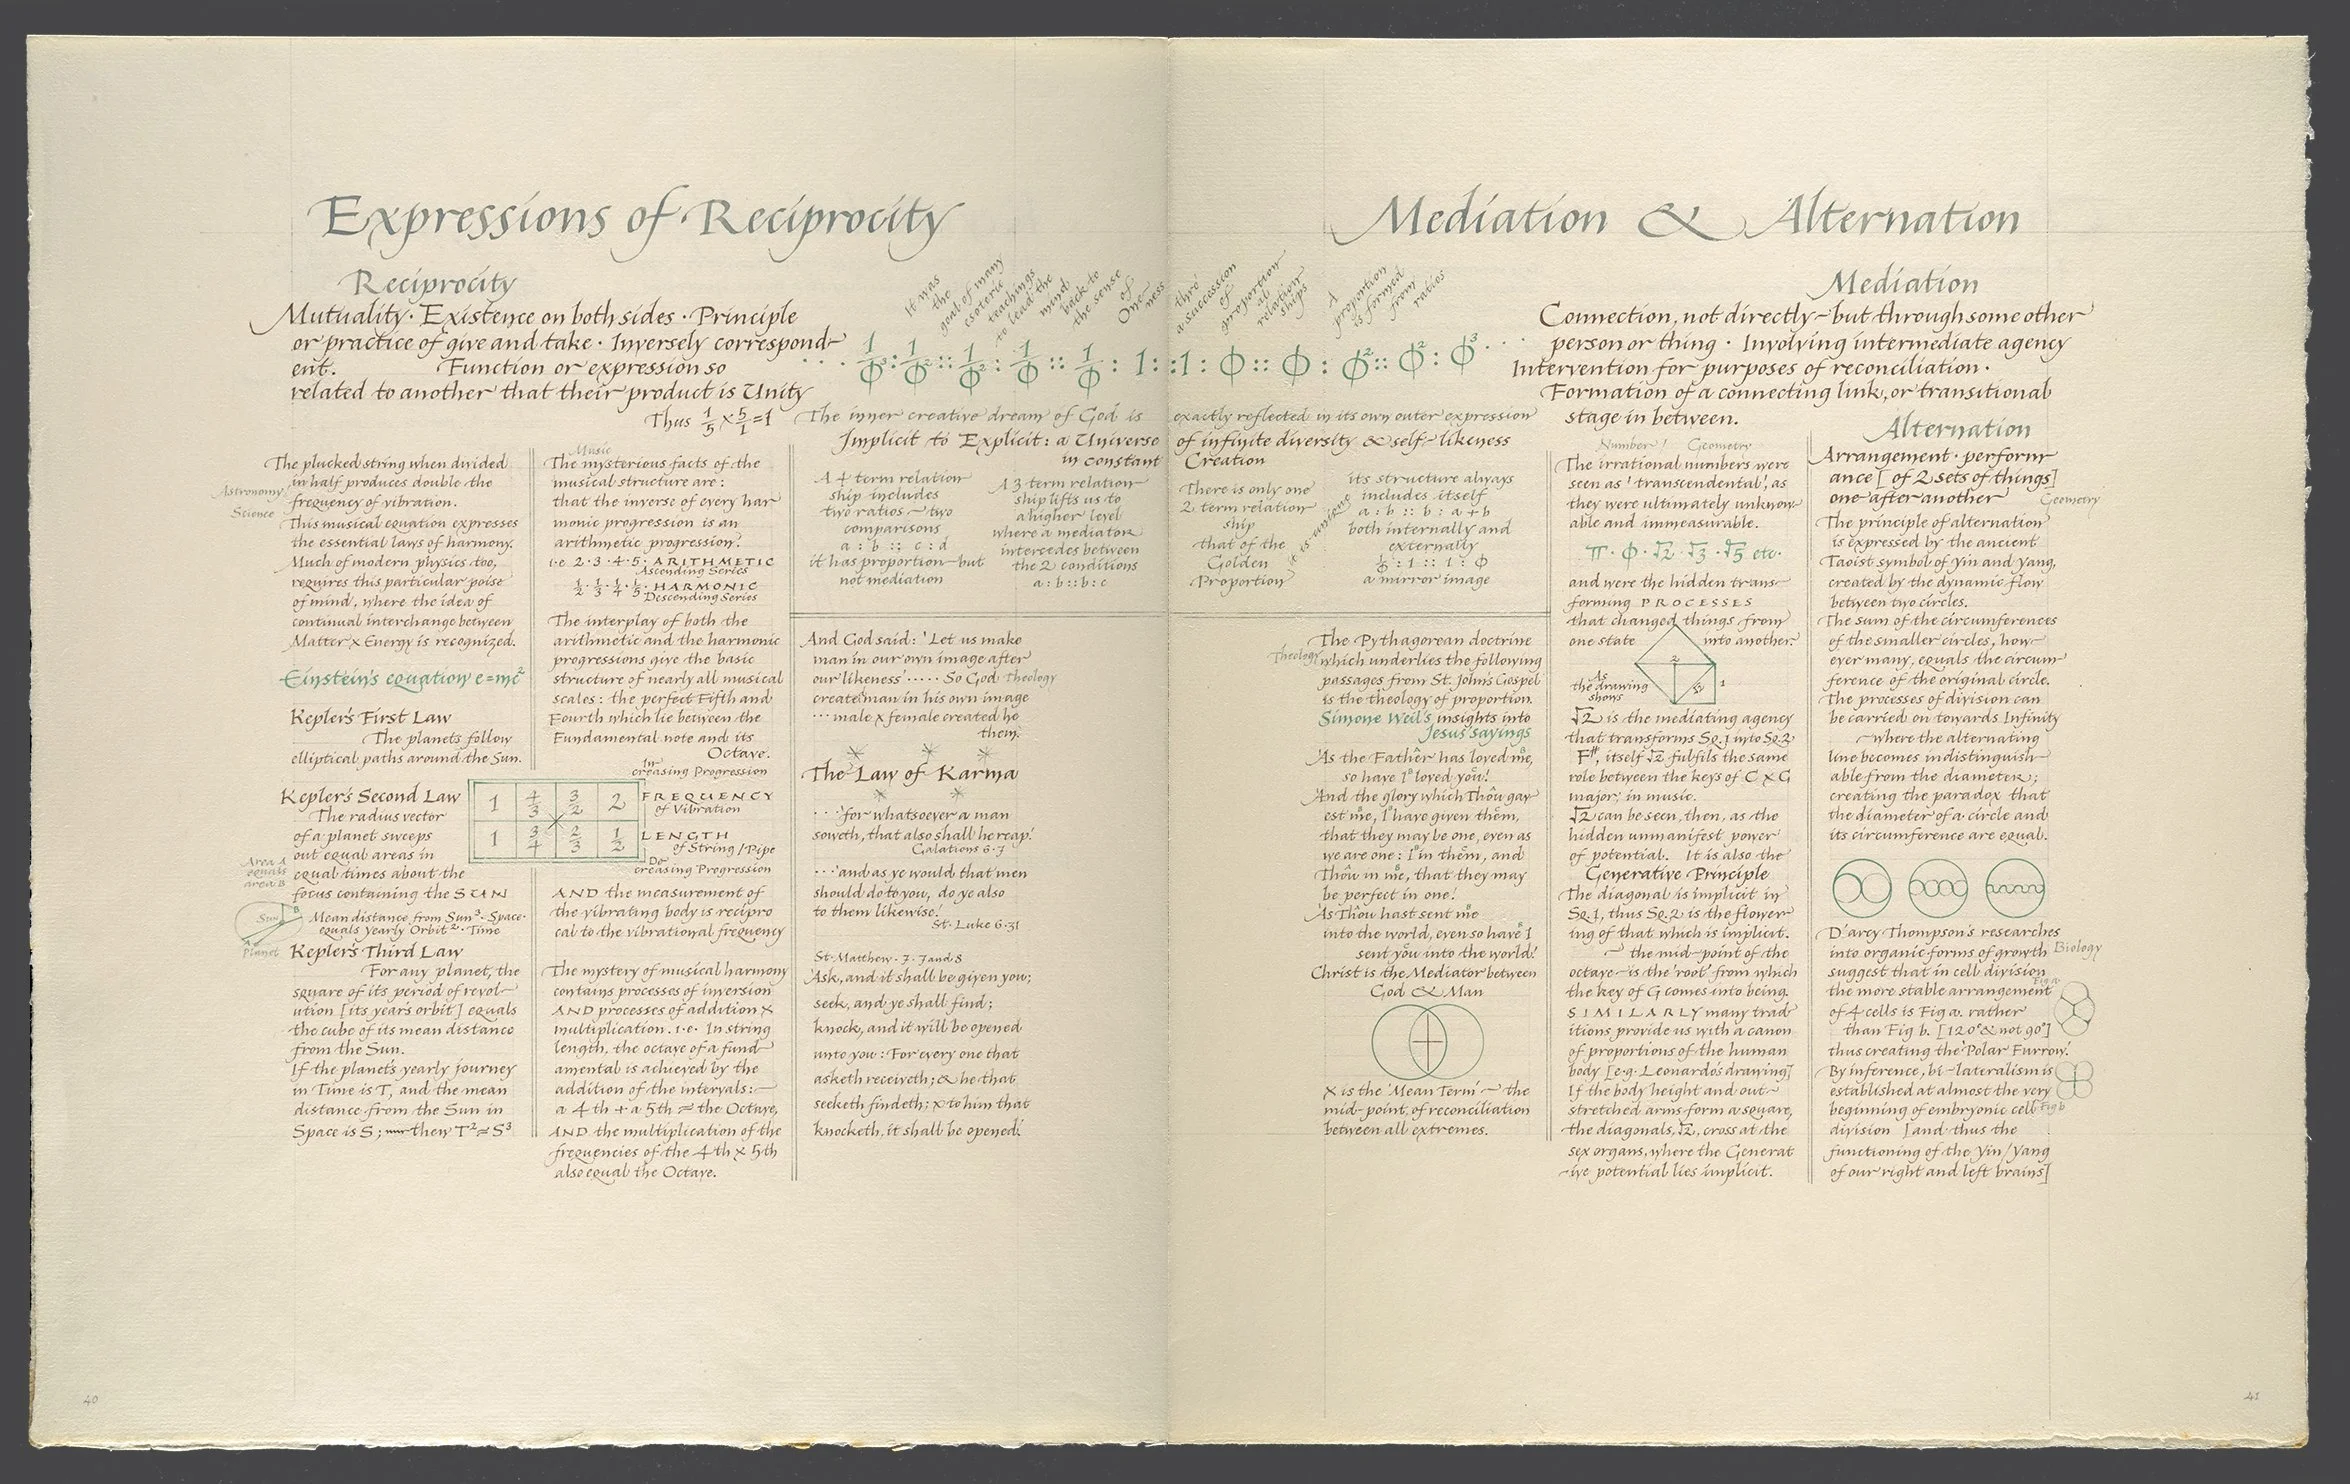 Expressions of Reciprocity
Reciprocity
Mutuality · Existence on both sides · Principle
or practice of give and take · Inversely correspond-
ent. Function or expression so
related to another that their product is Unity
Thus 1/5 × 5/1 = 1
It was
the
goal of many
esoteric
teachings
to lead the
mind
back to
the sense
of
One-
ness
thro'
a succession
of
proportion
al
relation
ships
A
proportion
is formed
from
ratios
· · · 1/Φ³ : 1/Φ² :: 1/Φ² : 1/Φ :: 1/Φ : 1 :: 1 : Φ :: Φ : Φ² :: Φ² : Φ³ · · ·
The inner creative dream of God is exactly reflected in its own outer expression
Implicit to Explicit: a Universe of infinite diversity & self-likeness
in constant Creation
Astronomy
Science
The plucked string when divided
in half produces double the
frequency of vibration.
This musical equation expresses
the essential laws of harmony.
Much of modern physics too,
requires this particular poise
of mind, where the idea of
continual interchange between
Matter & Energy is recognized.
Einstein's equation e=mc²
Kepler's First Law
The planets follow
elliptical paths around the Sun.
Kepler's Second Law
The radius vector
of a planet sweeps
out equal areas in
equal times about the
focus containing the SUN
Area A
equals
area B
Sun
B
A
Planet
Mean distance from Sun³ · Space ·
equals yearly Orbit² · Time
Kepler's Third Law
For any planet, the
square of its period of revol-
ution [its years orbit] equals
the cube of its mean distance
from the Sun.
If the planet's yearly journey
in Time is T, and the mean
distance from the Sun in
Space is S; then T²=S³
Music
The mysterious facts of the
musical structure are:
that the inverse of every har
monic progression is an
arithmetic progression.
i.e 2·3·4·5· ARITHMETIC
Ascending Series
1/2·1/3·1/4·1/5· HARMONIC
Descending Series
The interplay of both the
arithmetic and the harmonic
progressions give the basic
structure of nearly all musical
scales: the perfect Fifth and
Fourth which lie between the
Fundamental note and its
Octave.
In
creasing Progression
1 4/3 3/2 2
FREQUENCY
of Vibration
1 3/4 2/3 1/2
LENGTH
of String/Pipe
De
creasing Progression
AND the measurement of
the vibrating body is recipro
cal to the vibrational frequency
The mystery of musical harmony
contains processes of inversion
AND processes of addition &
multiplication. i.e. In string
length, the octave of a fund-
amental is achieved by the
addition of the intervals:-
a 4th + a 5th = the Octave,
AND the multiplication of the
frequencies of the 4th × 5th
also equal the Octave.
A 4 term relation
ship includes
two ratios ~ two
comparisons
a : b :: c : d
it has proportion - but
not mediation
A 3 term relation-
ship lifts us to
a higher level
where a mediator
intercedes between
the 2 conditions
a : b :: b : c
And God said: 'Let us make
man in our own image after
our likeness' ····· So God
Theology
create man in his own image
··· male & female created he
them.
The Law of Karma
···'for whatsoever a man
soweth, that also shall he reap.'
Galations 6·7
···'and as ye would that men
should do to you, do ye also
to them likewise.'
St. Luke 6·31
St. Matthew · 7 · 7 and 8
'Ask, and it shall be given you;
seek, and ye shall find;
knock, and it will be opened
unto you: For every one that
asketh receiveth; & he that
seeketh findeth; & to him that
knocketh, it shall be opened.'
40
Mediation & Alternation
Mediation
Connection, not directly - but through some other
person or thing · Involving intermediate agency
Intervention for purposes of reconciliation ·
Formation of a connecting link, or transitional
stage in between.
There is only one
2 term relation
ship
that of the
Golden
Proportion
it is unique
its structure always
includes itself
a : b :: b : a+b
both internally and
externally
1/Φ : 1 :: 1 : Φ
a mirror image
Theology
The Pythagorean doctrine
which underlies the following
passages from St. John's Gospel
is the theology of proportion.
Simone Weil's insights into
Jesus' sayings
'As the Father has loved me,
so have I loved you.'
'And the glory which Thou gav
est me, I have given them,
that they may be one, even as
we are one: I in them, and
Thou in me, that they may
be perfect in one.'
'As Thou hast sent me
into the world, even so have I
sent you into the world.'
Christ is the Mediator between
God & Man
X is the 'Mean Term' ~ the
mid-point of reconciliation
between all extremes.
Number / Geometry
The irrational numbers were
seen as 'transcendental', as
they were ultimately unknow-
able and immeasurable.
π · Φ · √2 · √3 · √5 etc.
and were the hidden trans-
forming PROCESSES
that changed things from
one state into another.
As
the drawing
shows
2
√2
1
√2 is the mediating agency
that transforms Sq.1 into Sq.2
F#, itself √2 fulfils the same
role between the keys of C & G
major, in music.
√2 can be seen, then, as the
hidden unmanifest power
of potential. It is also the
Generative Principle
The diagonal is implicit in
Sq.1, thus Sq.2 is the flower-
ing of that which is implicit.
~ the mid-point of the
octave - is the 'root' from which
the key of G comes into being.
SIMILARLY many trad
itions provide us with a canon
of proportions of the human
body [e.g. Leonardo's drawing]
If the body height and out-
stretched arms form a square,
the diagonals, √2, cross at the
sex organs, where the Generat
-ive potential lies implicit.
Alternation
Arrangement · perform-
ance [of 2 sets of things]
one after another
Geometry
The principle of alternation
is expressed by the ancient
Taoist symbol of Yin and Yang,
created by the dynamic flow
between two circles.
The sum of the circumferences
of the smaller circles, how-
ever many, equals the circum-
ference of the original circle.
The processes of division can
be carried on towards Infinity
~ where the alternating
line becomes indistinguish-
able from the diameter;
creating the paradox that
the diameter of a circle and
its circumference are equal.
D'arcy Thompson's researches
into organic forms of growth
Biology
suggest that in cell division
the more stable arrangement
Fig a
of 4 cells is Fig a. rather
than Fig b. [120° & not 90°]
thus creating the 'Polar Furrow.'
By inference, bi-lateralism is
established at almost the very
beginning of embryonic cell
Fig b
division [and thus the
functioning of the Yin/Yang
of our right and left brains]
41